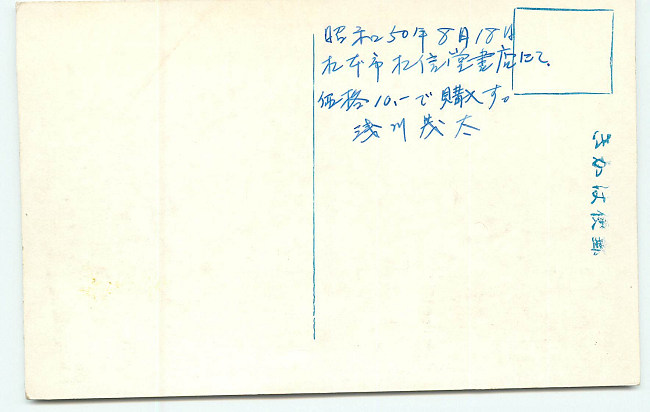 昭和50年8月18日
松本市松信堂書店にて、
価格10.-で購入す。
浅川茂太
郵便はかき